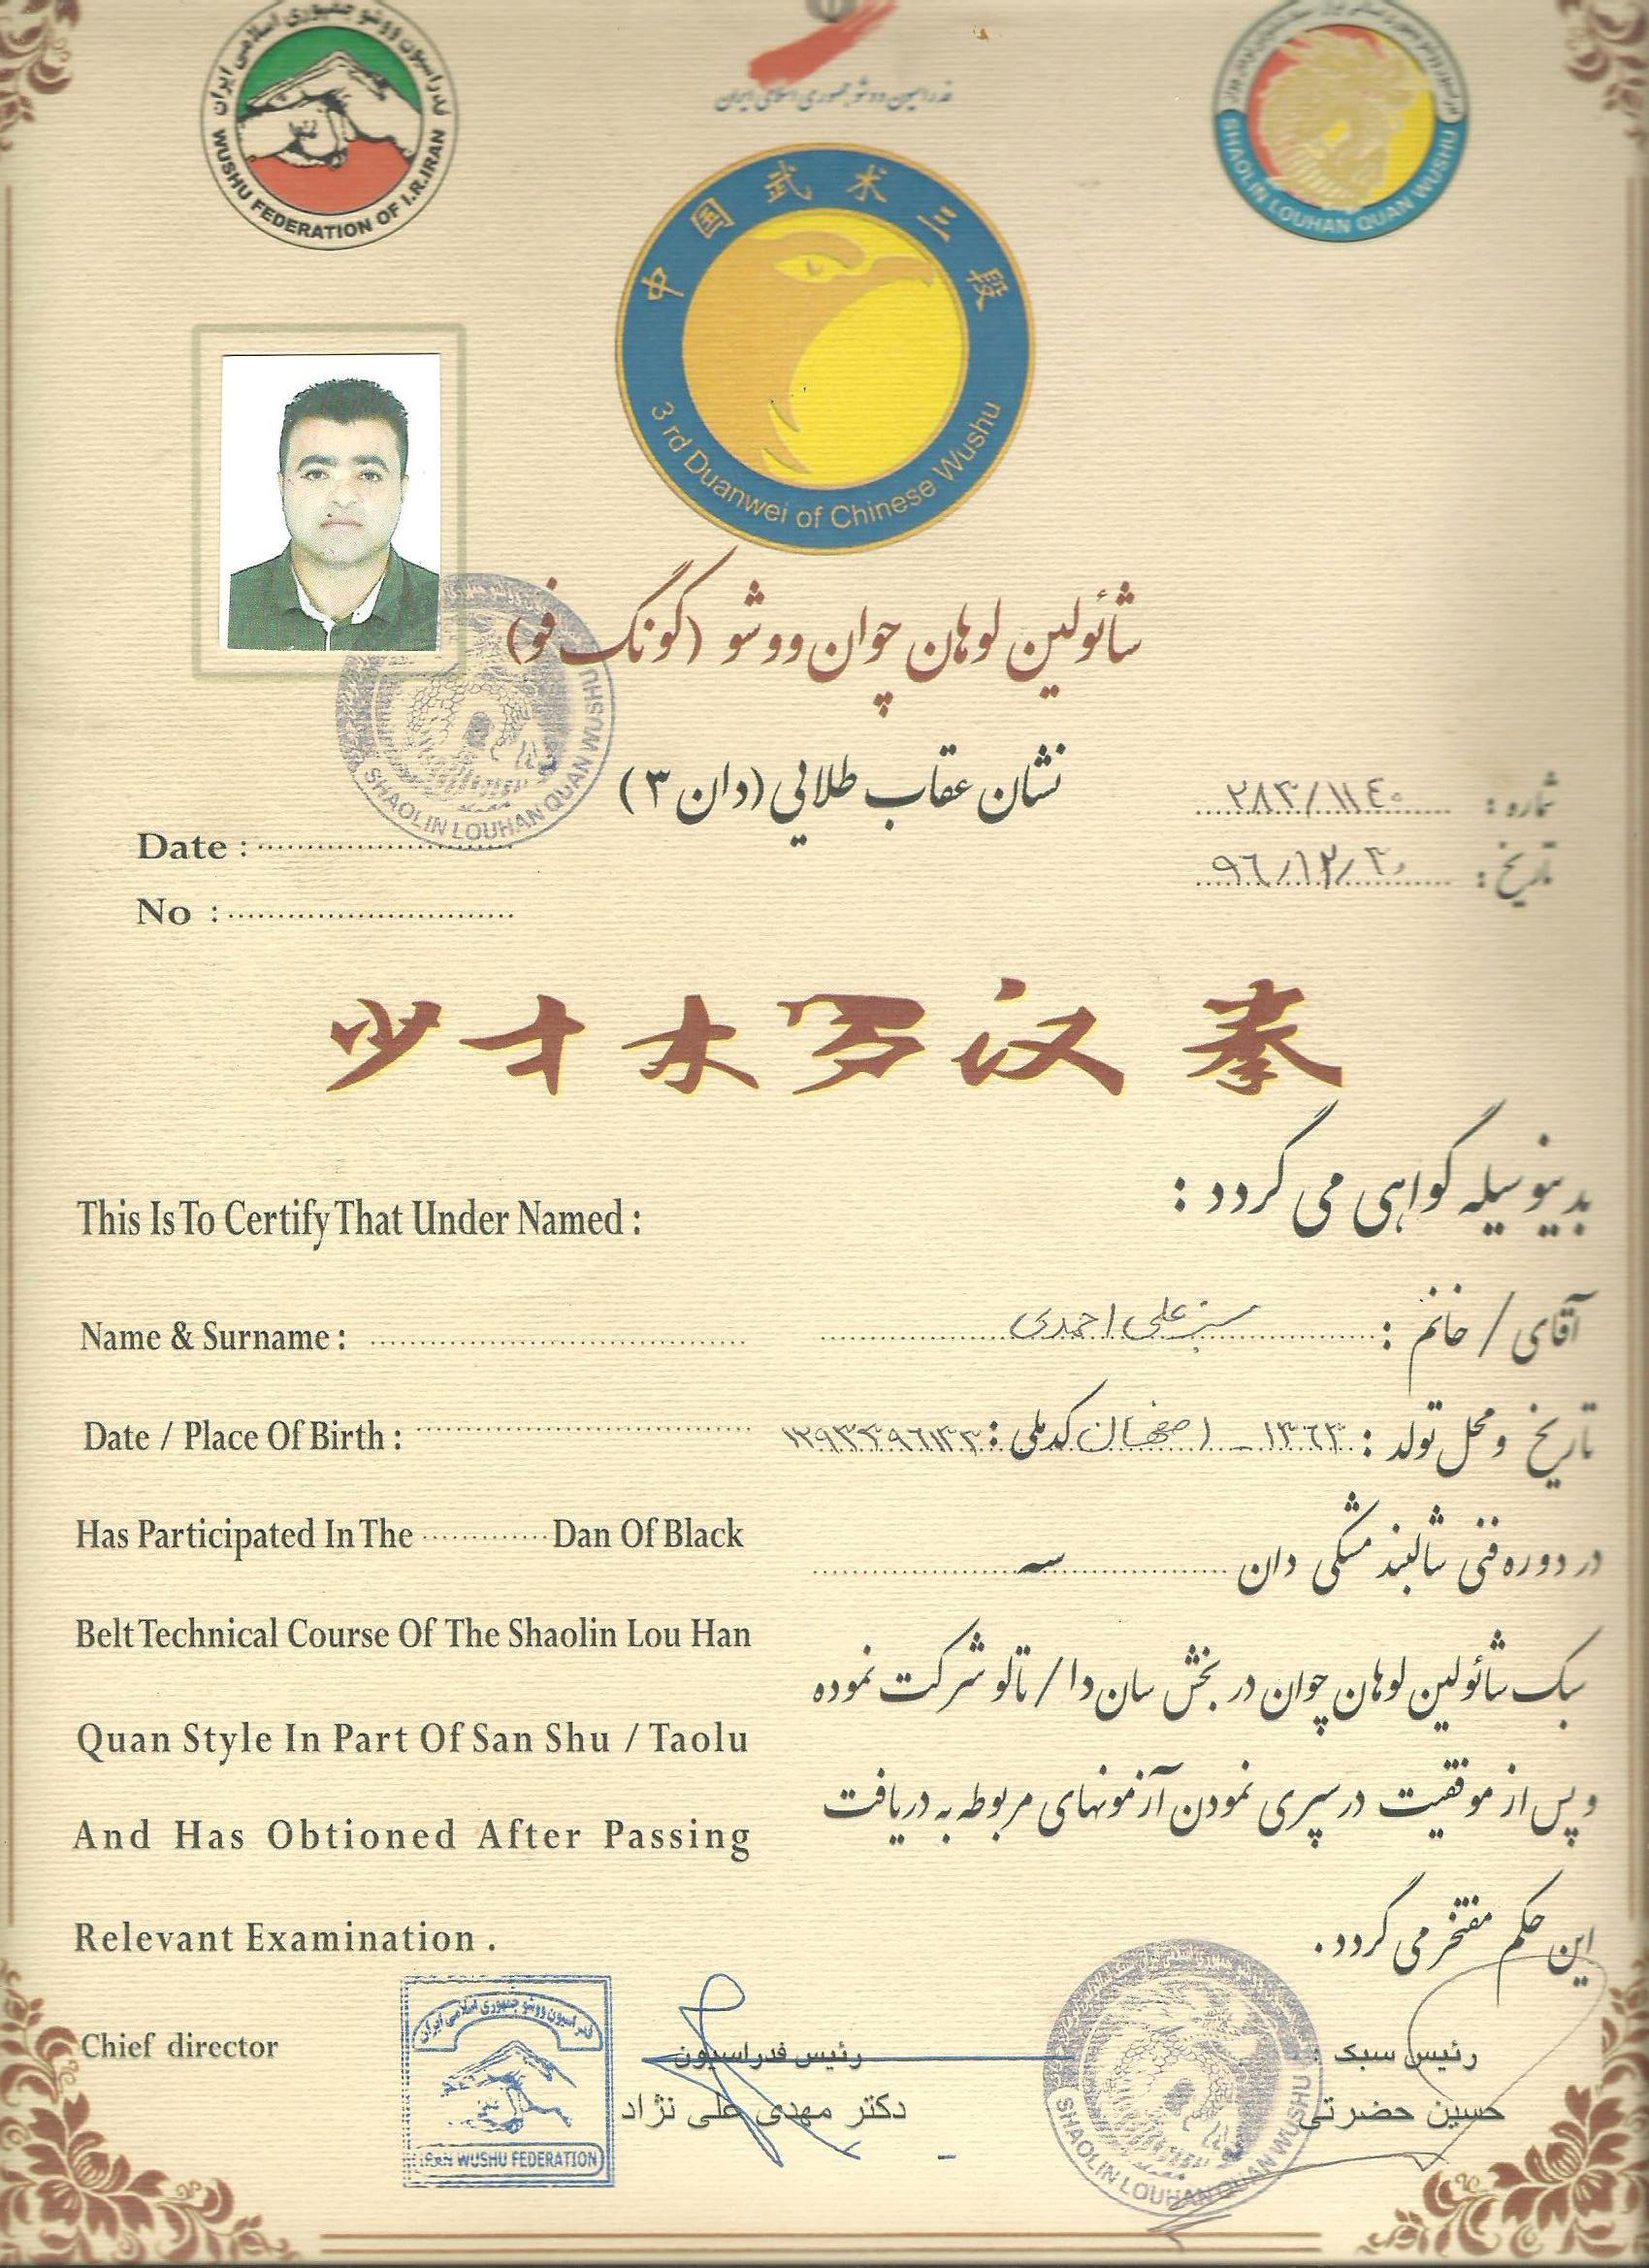 فدراسیون ووشو جمهوری اسلامی ایران
WUSHU FEDERATION OF I.R.IRAN
فدراسیون ووشو جمهوری اسلامی ایران
SHAOLIN LOUHAN QUAN WUSHU
中国武术三段
3 rd Duanwei of Chinese Wushu
شائولین لوهان چوان ووشو (کونگ فو)
SHAOLIN LOUHAN QUAN WUSHU
نشان عقاب طلایی (دان ۳)
شماره : ۲۸۳/۱۱۴۰
Date :
تاریخ : ۹۶/۱۲/۲۰
No :
少林罗汉拳
بدینوسیله گواهی می گردد :
This Is To Certify That Under Named :
آقای / خانم : سبزعلی احمدی
Name & Surname :
تاریخ و محل تولد : ۱۳۶۳ - اصفهان کدملی :
Date / Place Of Birth :
در دوره فنی شالبند مشکی دان سه
Has Participated In The Dan Of Black
سبک شائولین لوهان چوان در بخش سان دا / تالو شرکت نموده
Belt Technical Course Of The Shaolin Lou Han
Quan Style In Part Of San Shu / Taolu
و پس از موفقیت در سپری نمودن آزمونهای مربوطه به دریافت
And Has Obtioned After Passing
این حکم مفتخر می گردد.
Relevant Examination .
رئیس سبک
رئیس فدراسیون
Chief director
حسین حضرتی
دکتر مهدی علی نژاد
فدراسیون ووشو جمهوری اسلامی ایران
IRAN WUSHU FEDERATION
SHAOLIN LOUHAN QUAN WUSHU